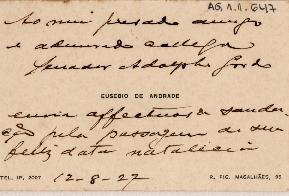 AG.1.1.647
Ao meu prezado amigo
e admirado collega
Senador Adolpho Gordo
EUSEBIO DE ANDRADE
envia affectuosa sauda-
ção pela passagem de sua
feliz data natalicia
TEL. IP. 2007 12-8-27 R. FIG. MAGALHÃES, 95